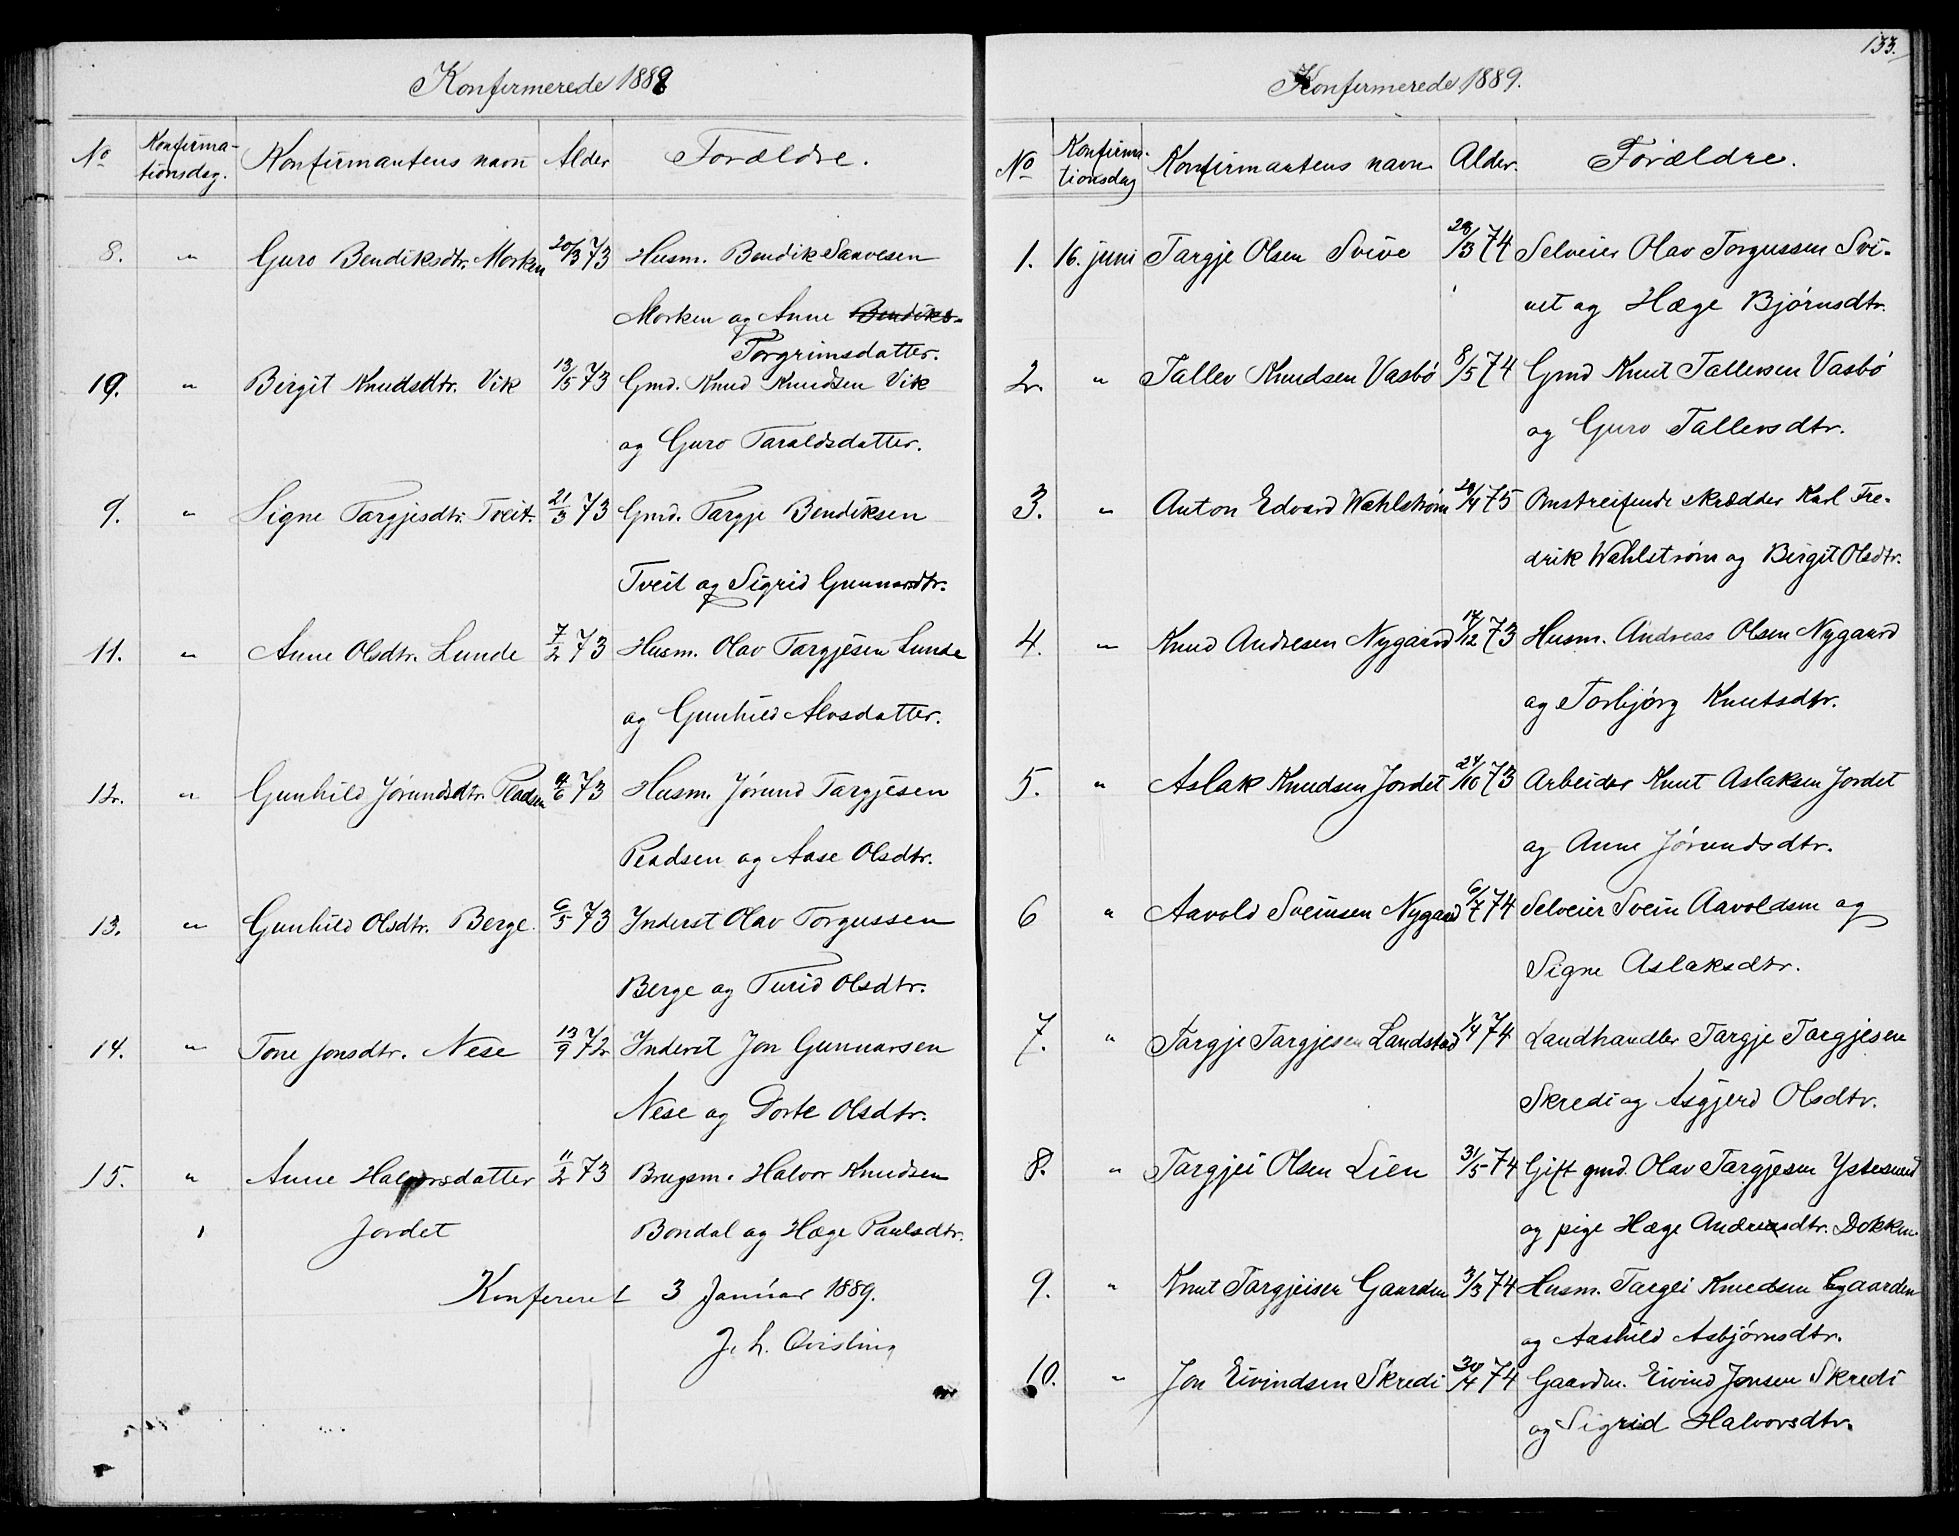 Konfirmerede 1888
No Konfirma- Konfirmantens navn Alder Forældre.
tionsdag.
8. " Guro Bendiksdtr. Morken 20/3 73 Husm. Bendik Saavesen
Morken og Anne Bendiks-
Torgrimsdatter.
10. " Birgit Knudsdtr. Vik 13/5 73 Gmd. Knud Knudsen Vik
og Guro Taraldsdatter.
9. " Signe Targjesdtr. Tveit. 21/3 73 Gmd. Targje Bendiksen
Tveit og Sigrid Gunnarsdtr.
11. " Anne Olsdtr. Lunde 7/2 73 Husm. Olav Targjesen Lunde
og Gunhild Alvsdatter.
12. " Gunhild Jørundsdtr. Pladsen 4/6 73 Husm. Jørund Targjesen
Pladsen og Aase Olsdtr.
13. " Gunhild Olsdtr. Berge. 6/5 73 Inderst Olav Torgussen
Berge og Turid Olsdtr.
14. " Tone Jonsdtr. Nese 13/9 72 Inderst Jon Gunnarsen
Nese og Dorte Olsdtr.
15. " Anne Halvorsdatter 11/2 73 Brugsm. Halvor Knudsen
Jordet Bondal og Hæge Paulsdtr.
Konfereret 3 Januar 1889.
J. L. Qvisling
133.
Konfirmerede 1889.
No Konfirma- Konfirmantens navn Alder. Forældre.
tionsdag
1. 16. juni Targje Olsen Svive 28/3 74 Selveier Olav Torgussen Svi-
vet og Hæge Bjørnsdtr.
2. " Tallev Knudsen Vasbø 8/5 74 Gmd Knut Tallevsen Vasbø
og Guro Tallevsdtr.
3. " Anton Edvard Wahlstrøm 28/4 75 Omstreifende skrædder Karl Fre-
drik Wahlstrøm og Birgit Olsdtr.
4. " Knud Andresen Nygaard 17/12 73 Husm. Andreas Olsen Nygaard
og Torbjørg Knutsdtr.
5. " Aslak Knudsen Jordet 24/10 73 Arbeider Knut Aslaksen Jordet
og Anne Jørundsdtr.
6 " Aavold Sveinsen Nygaard 6/7 74 Selveier Svein Aavoldsen og
Signe Aslaksdtr.
7. " Targje Targjesen Landstad 1/4 74 Landhandler Targje Targjesen
Skredi og Asgjerd Olsdtr.
8. " Targjei Olsen Lien 31/5 74 Gift gmd. Olav Targjesen Ystesund
og pige Hæge Andreasdtr. Dokken.
9. " Knut Targjeisen Gaarden 3/3 74 Husm. Targei Knudsen Gaarden
og Aashild Asbjørnsdtr.
10. " Jon Eivindsen Skredi 30/4 74 Gaardm. Eivind Jonsen Skredi
og Sigrid Halvorsdtr.